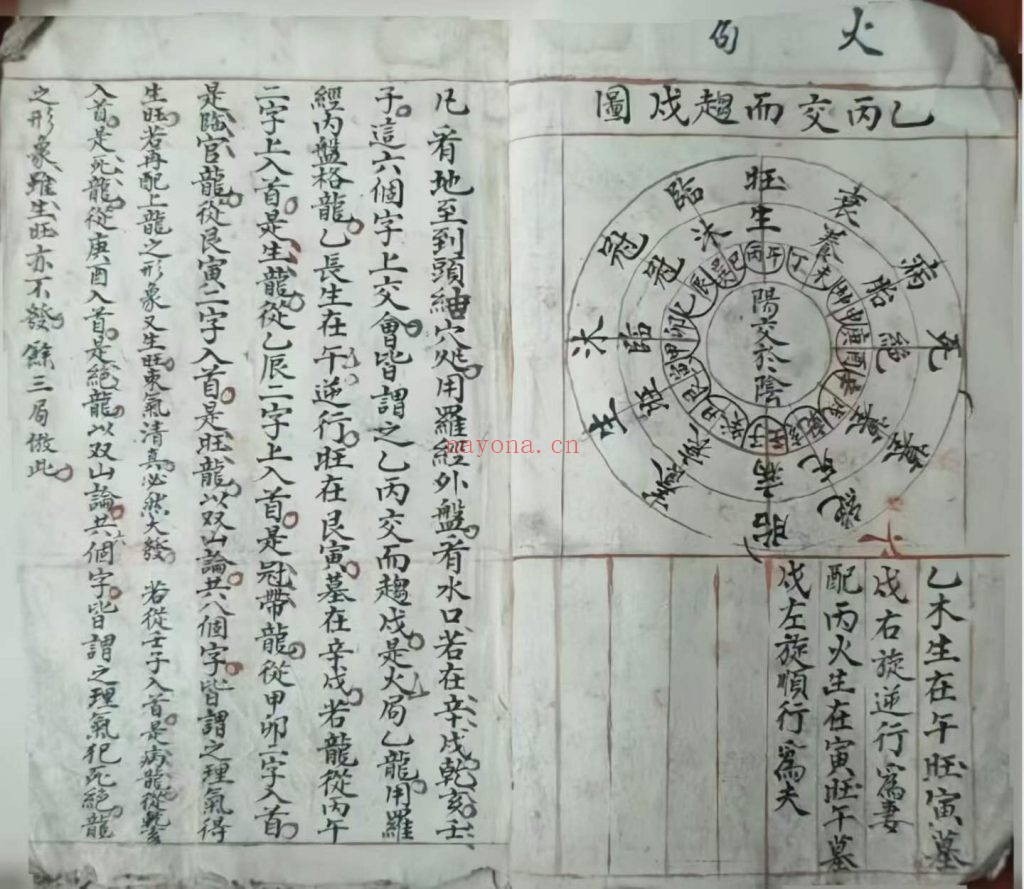 火局
乙丙交而趨戌圖
旺衰病死墓絕胎養生沐冠臨
生養胎絕墓死病衰旺臨冠沐
丙午丁未坤申庚酉辛戌乾亥壬子癸丑艮寅甲卯乙辰巽巳
陽交於陰
乙木生在午旺寅墓
戌右旋逆行為妻
配丙火生在寅旺午墓
戌左旋順行為夫
凡看地至到頭細穴処用羅經外盤看水口若在辛戌乾亥壬
子這六個字上交會皆謂之乙丙交而趨戌是火局乙龍用羅
經內盤格龍乙長生在午逆行旺在艮寅墓在辛戌若龍從丙午
二字上入首是生龍從乙辰二字上入首是冠帶龍從甲卯二字入首
是臨官龍從艮寅二字入首是旺龍以双山論共八個字皆謂之理氣得
生旺若再配上龍之形象又生旺東氣清真必然大發 若從壬子入首是病龍從乾亥
入首是死龍從庚酉入首是絕龍以双山論共六個字皆謂之理氣犯死絕龍
之形象雖生旺亦不發餘三局倣此
nayona.cn